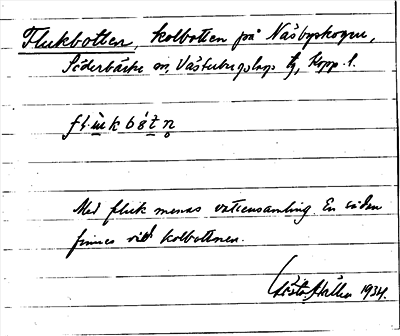 Flukbotten, kolbotten på Näsbyskogen,
Söderbärke sn, Västerbergslags tg, Kopp. l.
flukbótn
Med fluk menas vattensamling. En sådan
finnes vid kolbottnen.
Gösta Hallen 1934.